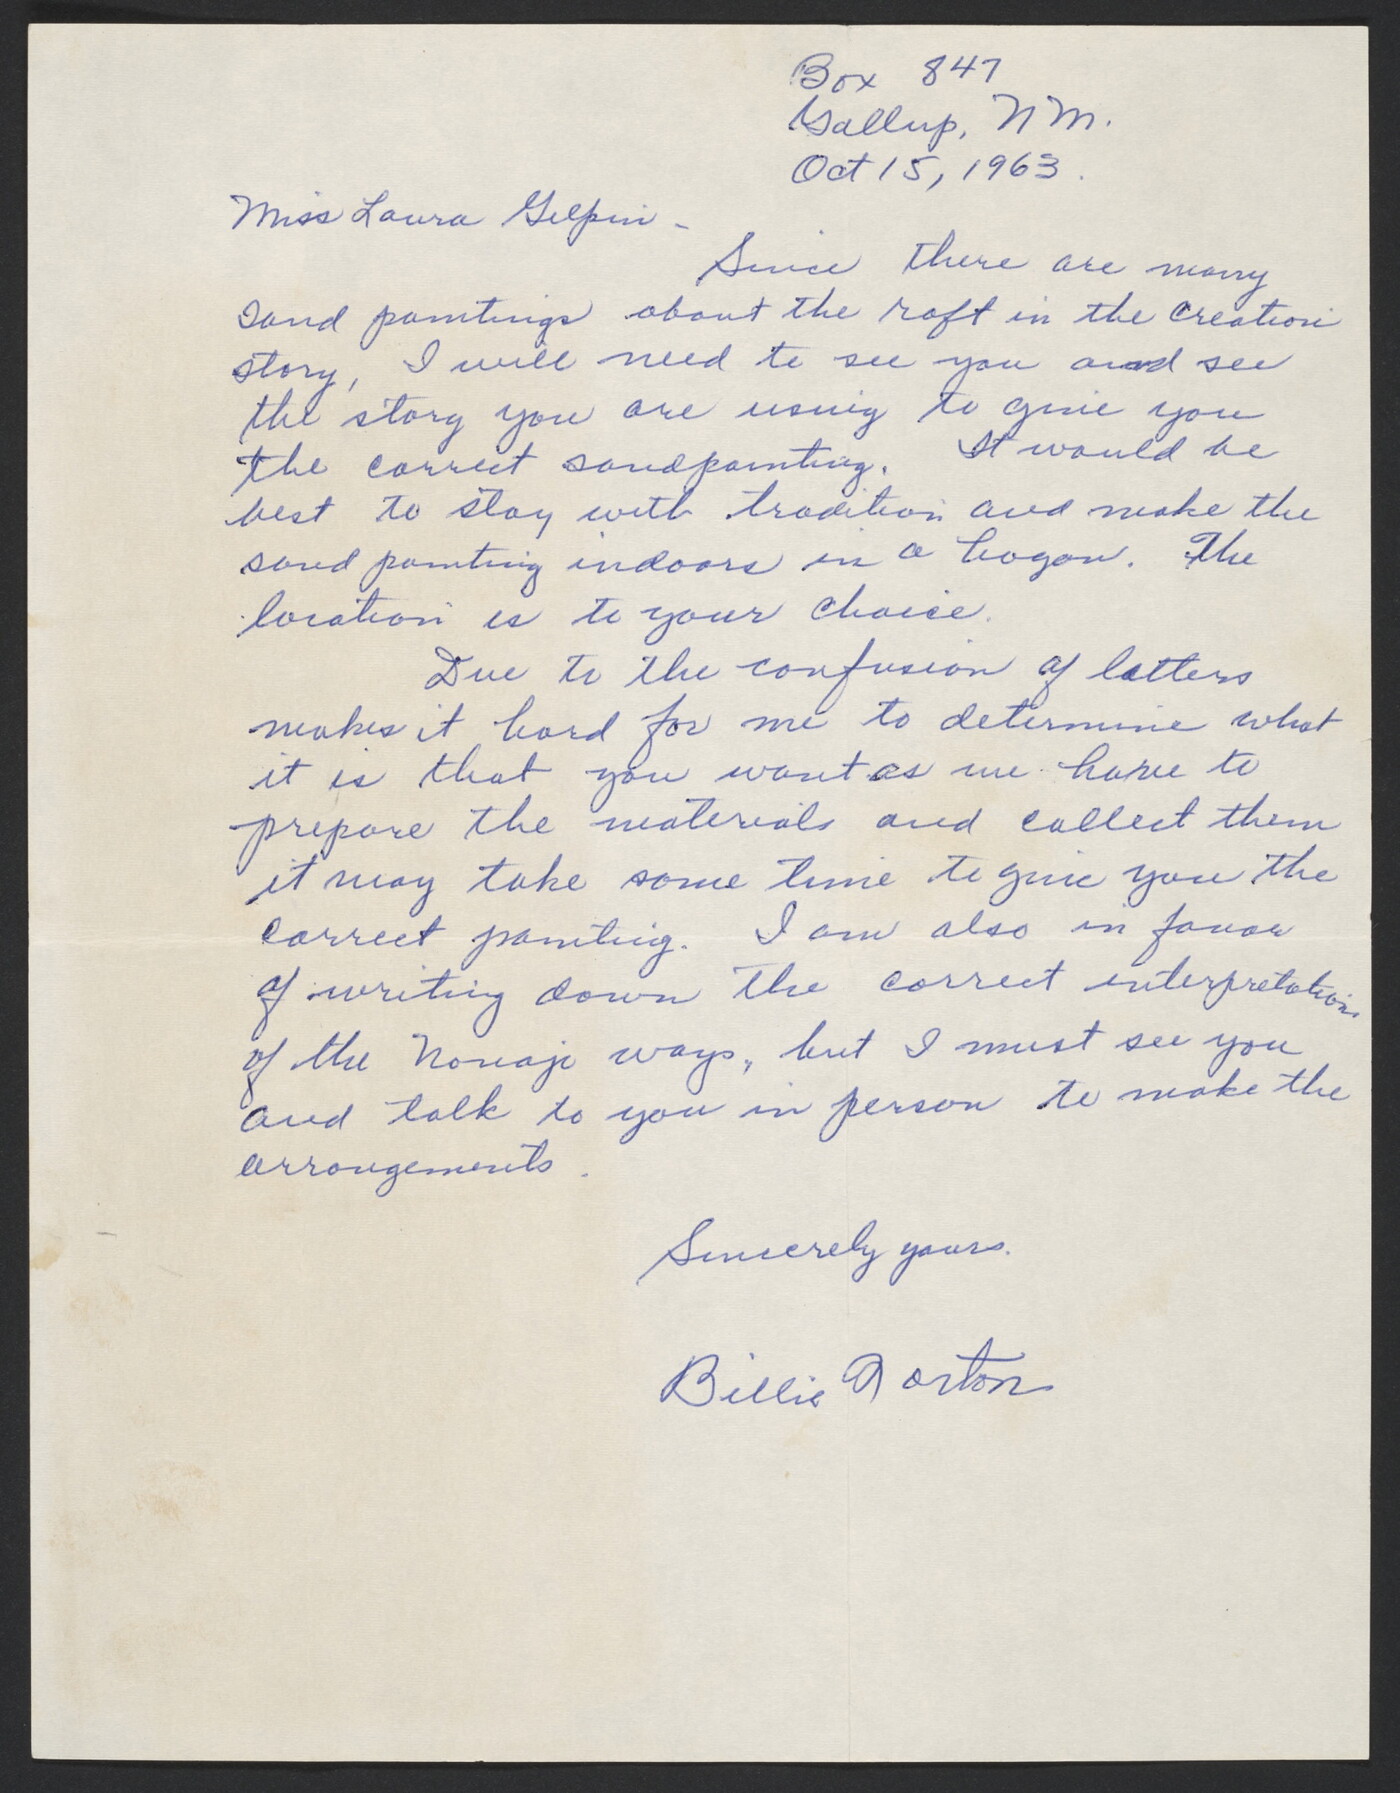 Box 847
Gallup, N M.
Oct 15, 1963.
Miss Laura Gilpin -
Since there are many
sand paintings about the raft in the creation
story, I will need to see you and see
the story you are using to give you
the correct sandpainting. It would be
best to stay with tradition and make the
sand painting indoors in a hogan. The
location is to your choice.
Due to the confusion of letters
makes it hard for me to determine what
it is that you want as we have to
prepare the materials and collect them
it may take some time to give you the
correct painting. I am also in favor
of writing down the correct interpretations
of the Navajo ways, but I must see you
and talk to you in person to make the
arrangements.
Sincerely yours.
Billie Norton